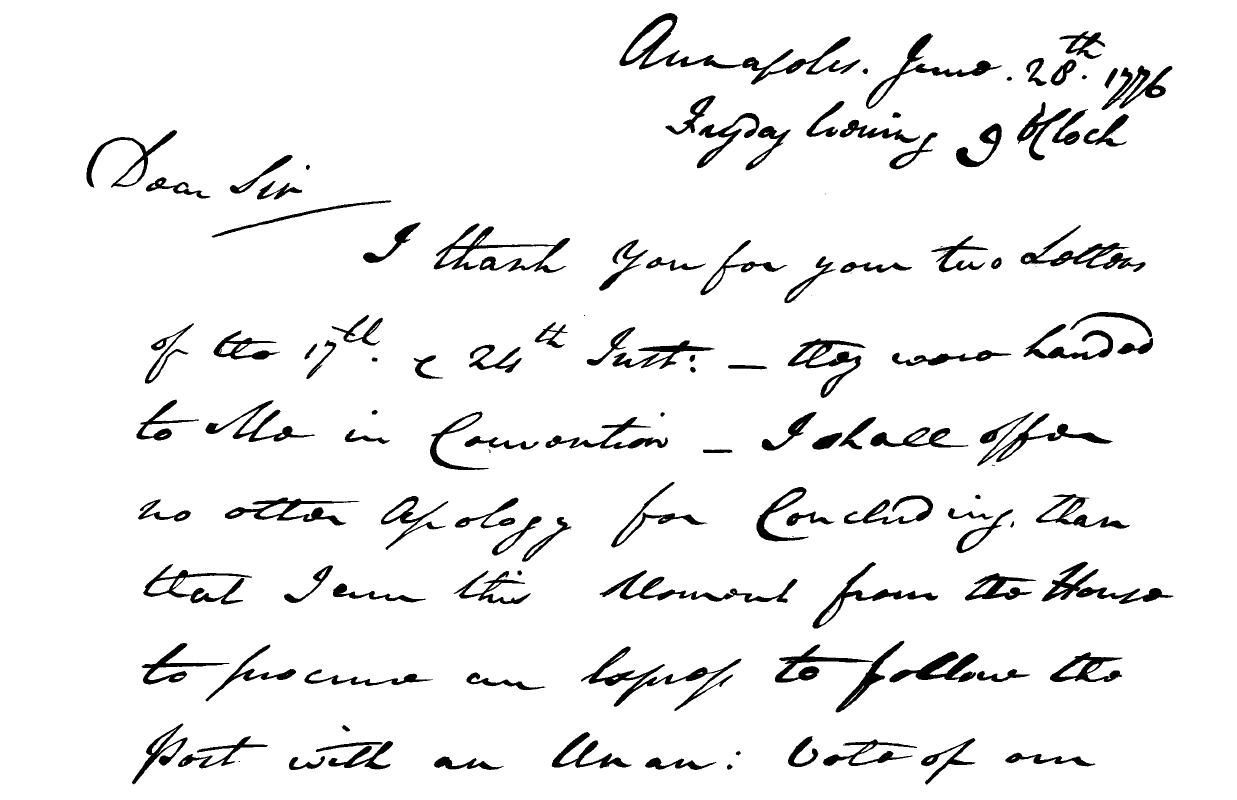 Annapolis. June. 28th. 1776
Fryday Evening 9 o'Clock
Dear Sir
I thank You for your two Letters
of the 17th. & 24th Inst: — they were handed
to Me in Convention — I shall offer
no other Apology for Concluding, than
that I am this Moment from the House
to procure an Express to follow the
Post with an Unan: Vote of our